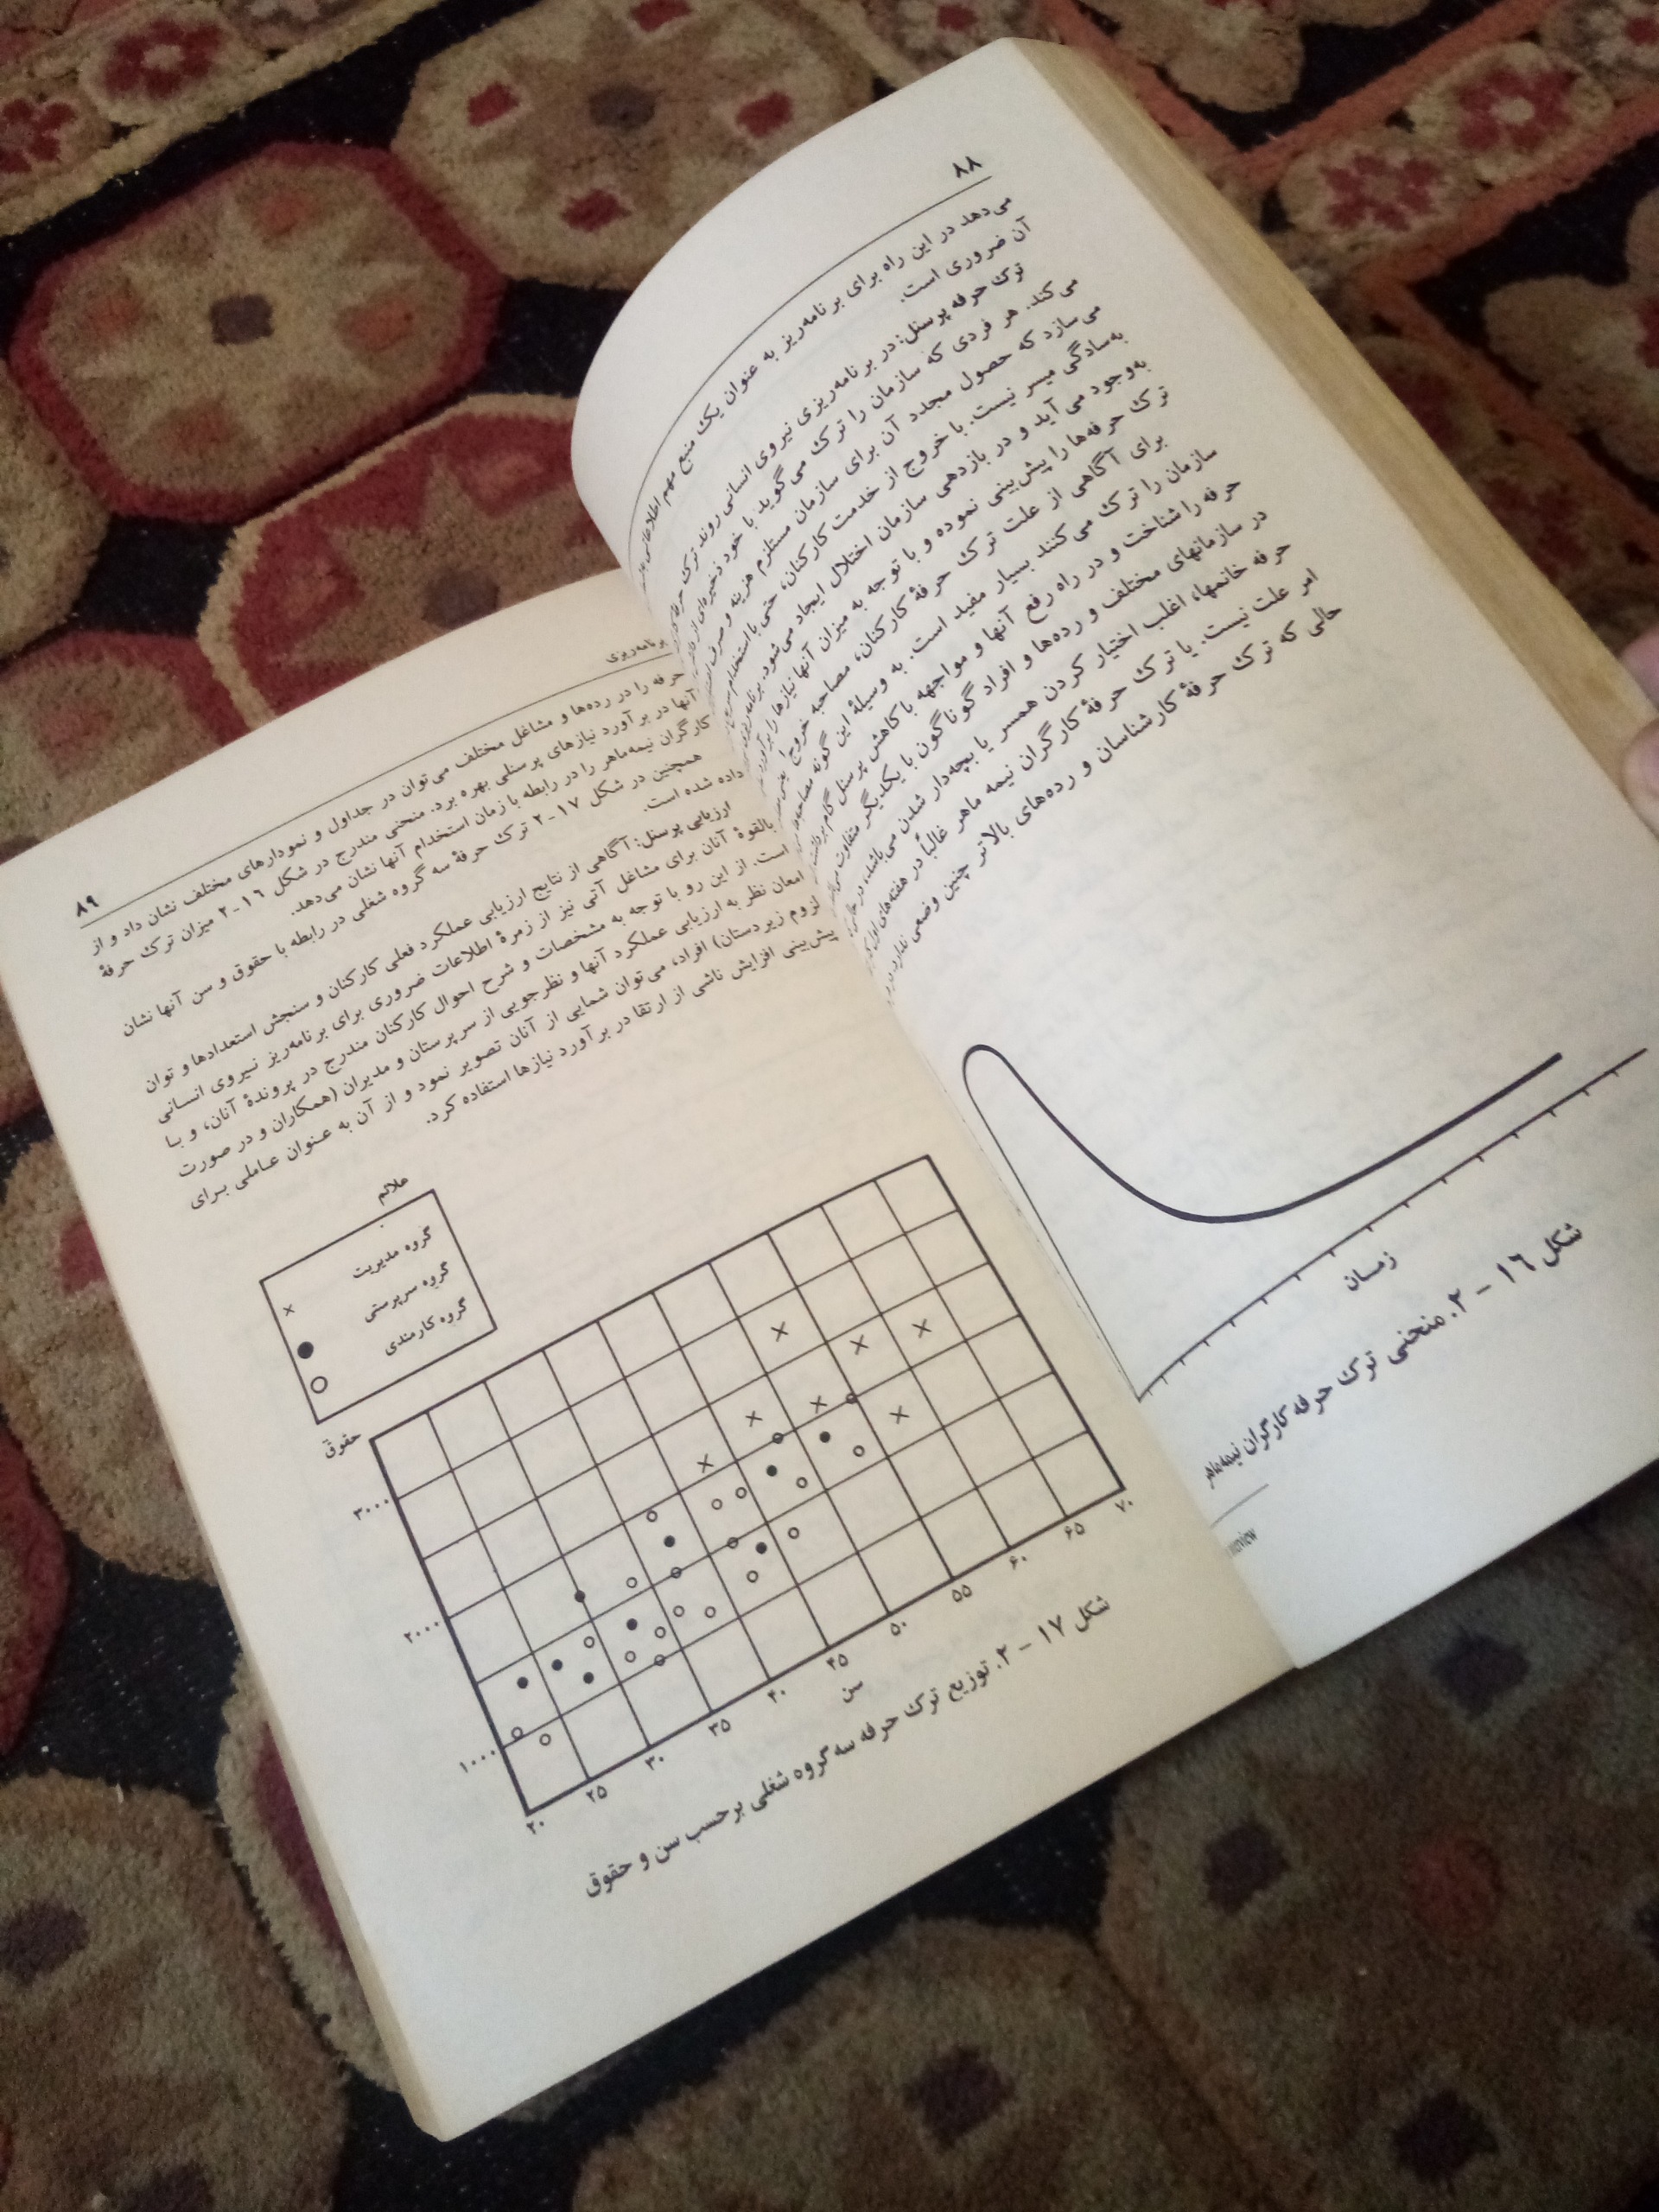 ۸۸
می‌دهد در این راه برای برنامه‌ریز به عنوان یک منبع مهم اطلاعاتی
آن ضروری است.
ترک حرفه پرسنل: در برنامه‌ریزی نیروی انسانی روند ترک حرفه
می‌کند. هر فردی که سازمان را ترک می‌گوید با خود ذخیره‌ای از
می‌سازد که حصول مجدد آن برای سازمان مستلزم هزینه و صرف
به‌سادگی میسر نیست. با خروج از خدمت کارکنان، حتی با استخدام
به‌وجود می‌آید و در بازدهی سازمان اختلال ایجاد می‌شود. برنامه‌ریز
ترک حرفه‌ها را پیش‌بینی نموده و با توجه به میزان آنها نیازها را برآورد
برای آگاهی از علت ترک حرفهٔ کارکنان، مصاحبه خروج
سازمان را ترک می‌کنند بسیار مفید است. به وسیلهٔ این گونه مصاحبه
حرفه را شناخت و در راه رفع آنها و مواجهه با کاهش پرسنل گام برداشت
در سازمانهای مختلف و رده‌ها و افراد گوناگون با یکدیگر متفاوت
حرفه خانمها، اغلب اختیار کردن همسر یا بچه‌دار شدن می‌باشد، در
امر علت نیست. یا ترک حرفهٔ کارگران نیمه ماهر غالباً در هفته‌های اول
حالی که ترک حرفهٔ کارشناسان و رده‌های بالاتر چنین وضعی ندارد
زمان
شکل ۱۶ - ۲. منحنی ترک حرفه کارگران نیمه‌ماهر
برنامه‌ریزی
۸۹
حرفه را در رده‌ها و مشاغل مختلف می‌توان در جداول و نمودارهای مختلف نشان داد و از
آنها در برآورد نیازهای پرسنلی بهره برد. منحنی مندرج در شکل ۱۶-۲ میزان ترک حرفهٔ
کارگران نیمه‌ماهر را در رابطه با زمان استخدام آنها نشان می‌دهد.
همچنین در شکل ۱۷-۲ ترک حرفهٔ سه گروه شغلی در رابطه با حقوق و سن آنها نشان
داده شده است.
ارزیابی پرسنل: آگاهی از نتایج ارزیابی عملکرد فعلی کارکنان و سنجش استعدادها و توان
بالقوهٔ آنان برای مشاغل آتی نیز از زمرهٔ اطلاعات ضروری برای برنامه‌ریز نیروی انسانی
است. از این رو با توجه به مشخصات و شرح احوال کارکنان مندرج در پروندهٔ آنان، و با
امعان نظر به ارزیابی عملکرد آنها و نظرجویی از سرپرستان و مدیران (همکاران و در صورت
لزوم زیردستان) افراد، می‌توان شمایی از آنان تصویر نمود و از آن به عنوان عاملی برای
پیش‌بینی افزایش ناشی از ارتقا در برآورد نیازها استفاده کرد.
علائم
گروه مدیریت ×
گروه سرپرستی ●
گروه کارمندی ○
حقوق
۳۰۰۰
۲۰۰۰
۱۰۰۰
۲۰ ۲۵ ۳۰ ۳۵ ۴۰ ۴۵ ۵۰ ۵۵ ۶۰ ۶۵ ۷۰
سن
شکل ۱۷ - ۲. توزیع ترک حرفه سه گروه شغلی برحسب سن و حقوق